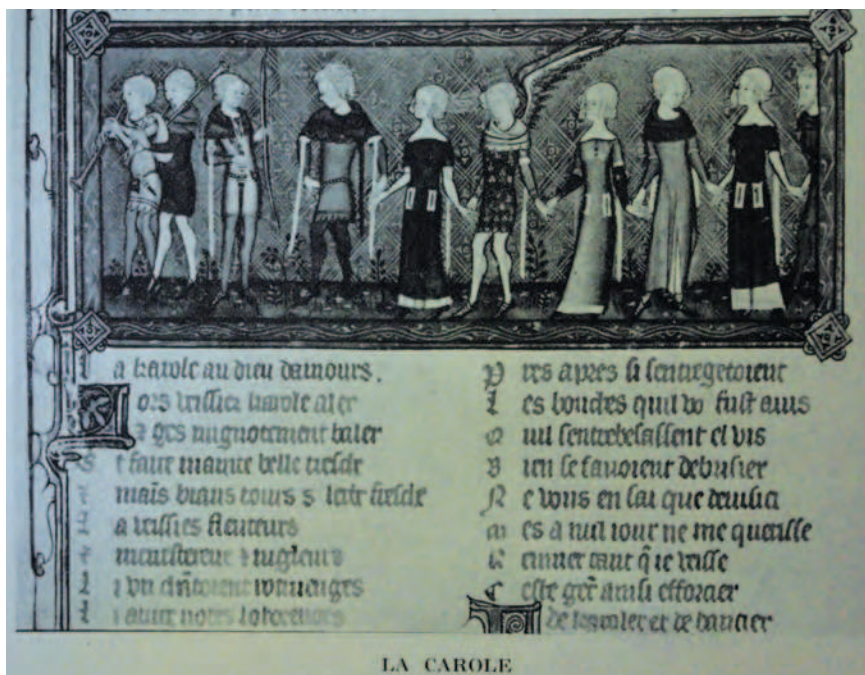 la karole au dieu damours.
Lors veissiez karole aler
ges mignotement baler
Et faire mainte belle tresche
mains biaus tours s lerbe fresche
La veissies fleuteurs
menestereus iugleurs
chantoient rotruenges
autre notes loherenges
Pres apres si sentregetoient
Les bouches quil vo fust auis
Quil sentrebesassent el vis
Bien se sauoient debrisier
Ne vous en sai que deuisier
Mes a nul iour ne me queisse
tant q̃ ie veisse
Ceste gẽt ainsi efforcier
De karoler et de dancier
LA CAROLE